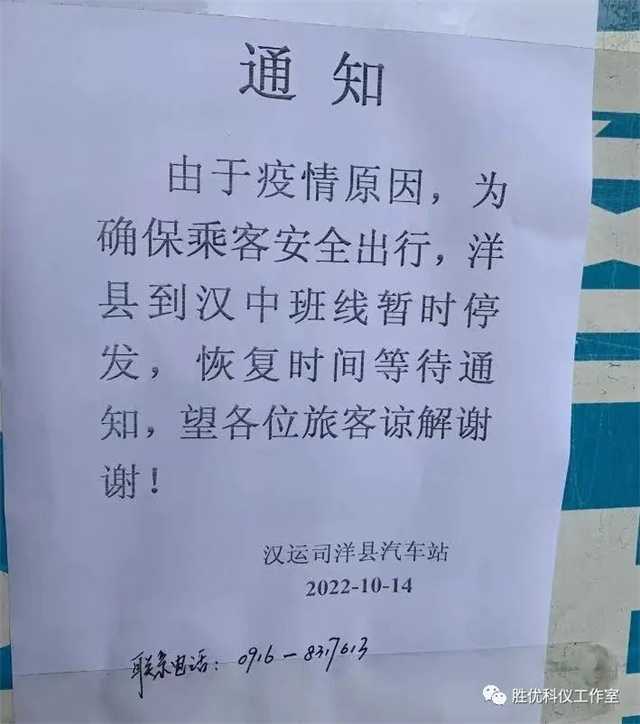 通 知
由于疫情原因，为
确保乘客安全出行，洋
县到汉中班线暂时停
发，恢复时间等待通
知，望各位旅客谅解谢
谢！
汉运司洋县汽车站
2022-10-14
联系电话：0916－8317613
胜优科仪工作室